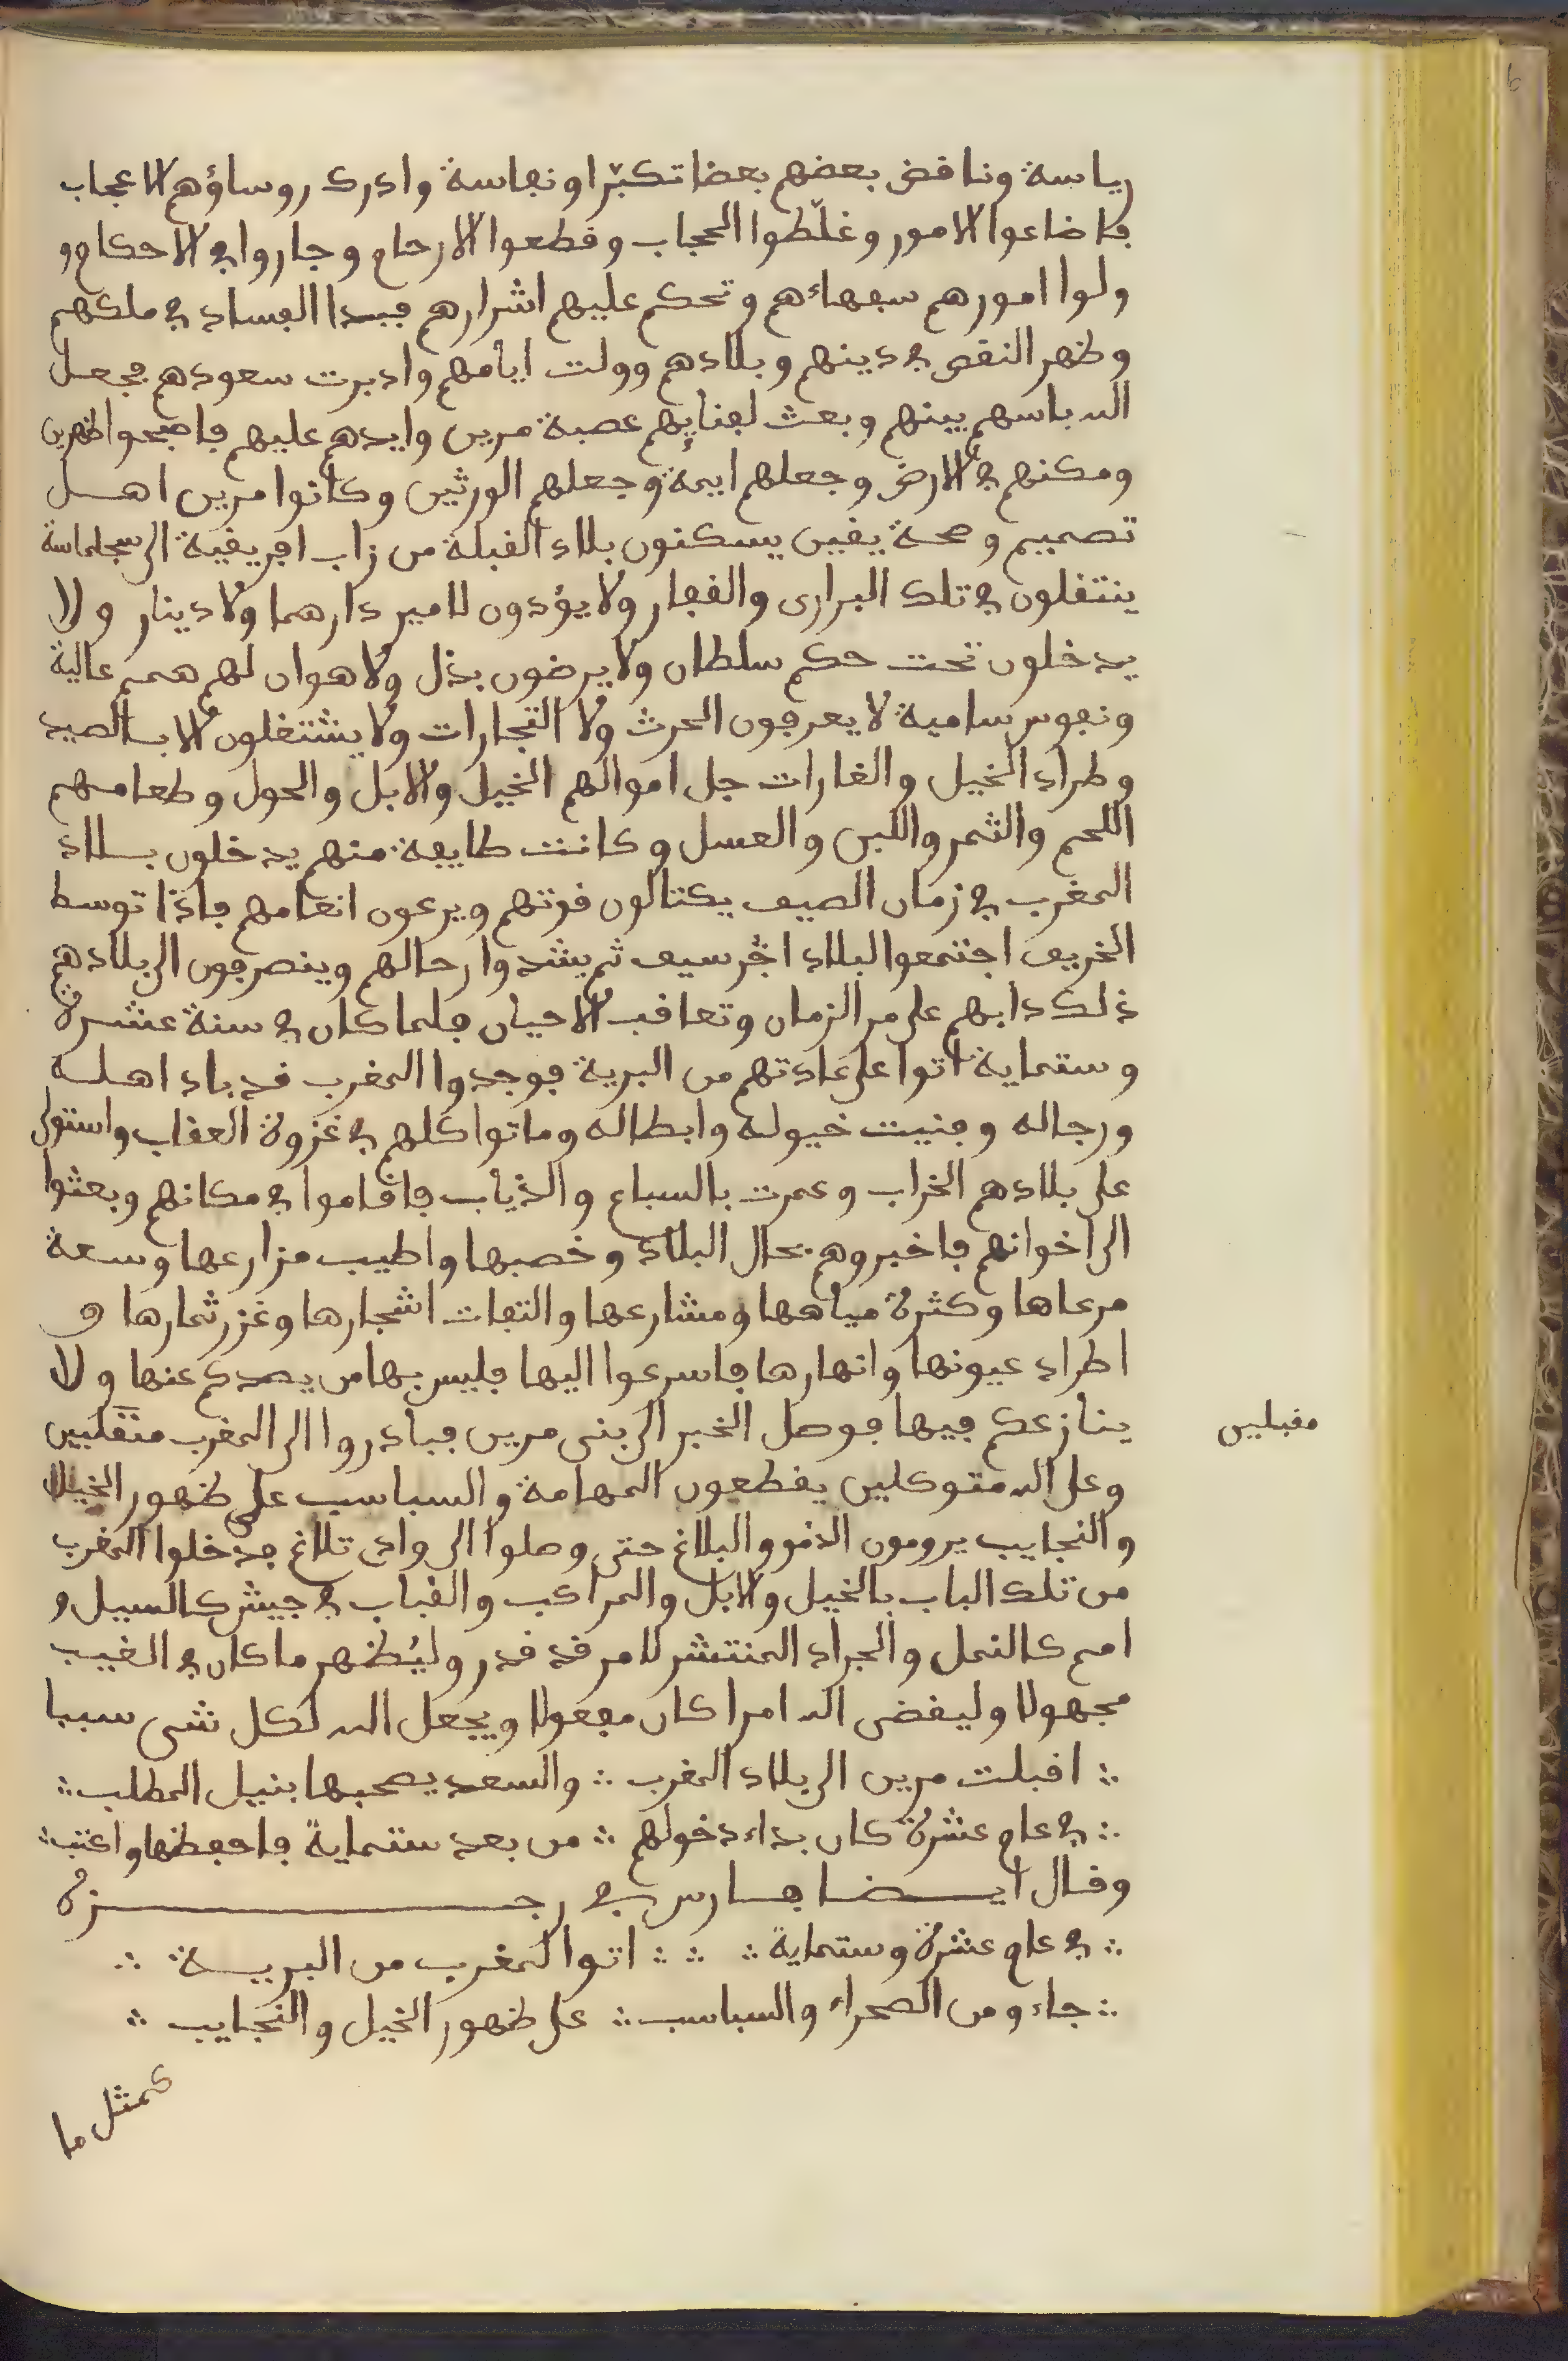 رياسة وناقض بعضهم بعضا تكبّرا ونفاسة وادرك روساؤهم الاعجاب
فاضاعوا الامور وغلّظوا الحجاب وقطعوا الارحام وجاروا في الاحكام و
ولوا امورهم سفهاءهم وتحكم عليهم اشرارهم فبدا الفساد في ملكهم
وظهر النقص في دينهم وبلادهم وولت ايامهم وادبرت سعودهم فجعل
الله باسهم بينهم وبعث لفنايهم عصبة مرين وايدهم عليهم فاصبحوا ظهرين
ومكنهم في الارض وجعلهم ايمة وجعلهم الورثين وكانوا مرين اهل
تصميم وصحة يقين يسكنون بلاد القبلة من زاب افريقية الى سجلماسة
ينتقلون في تلك البرارى والقفار ولا يؤدون لامير دارهما ولا دينار ولا
يدخلون تحت حكم سلطان ولا يرضون بذل ولا هوان لهم همم عالية
ونفوس سامية لا يعرفون الحرث ولا التجارات ولا يشتغلون الا بالصيد
وطراد الخيل والغارات جل اموالهم الخيل والابل والحول وطعامهم
اللحم والثمر واللبن والعسل وكانت طايفة منهم يدخلون بلاد
المغرب في زمان الصيف يكتالون قوتهم ويرعون انعامهم فاذا توسط
الخريف اجتمعوا لبلاد اجرسيف ثم يشدوا رحالهم وينصرفون الى بلادهم
ذلك دابهم على مر الزمان وتعاقب الاحيان فلما كان في سنة عشرة
وستماية اتوا على عادتهم من البرية فوجدوا المغرب قد باد اهله
ورجاله وفنيت خيوله وابطاله وماتوا كلهم في غزوة العقاب واستولى
على بلادهم الخراب وعمرت بالسباع والذياب فاقاموا في مكانهم وبعثوا
الى اخوانهم فاخبروهم بحال البلاد وخصبها واطيب مزارعها وسعة
مرعاها وكثرة مياهها ومشارعها والتفات اشجارها وغزر ثمارها و
اطراد عيونها وانهارها فاسرعوا اليها فليس بها من يصدكم عنها ولا
ينازعكم فيها فوصل الخبر الى بنى مرين فبادروا الى المغرب منقلبين
مقبلين
وعلى الله متوكلين يقطعون المهامة والسباسب على ظهور الخيل
والنجايب يرومون الدنو والبلاغ حتى وصلوا الى وادى تلاغ فدخلوا المغرب
من تلك الباب بالخيل والابل والمراكب والقباب في جيش كالسيل و
امم كالنمل والجراد المنتشر لامر قد قدر وليُظهر ما كان في الغيب
مجهولا وليقضى الله امرا كان مفعولا ويجعل الله لكل شى سببا
∴ اقبلت مرين الى بلاد المغرب ∴ والسعد يصحبها بنيل المطلب ∴
∴ في عام عشرة كان بداء دخولهم ∴ من بعد ستماية فاحفظها واعتب ∴
وقال ايضا فارس في رجزه
∴ في عام عشرة وستماية ∴ ∴ ∴ اتوا لمغرب من البرية ∴
∴ جاءو من الصحراء والسباسب ∴ على ظهور الخيل والنجايب ∴
كمثل ما